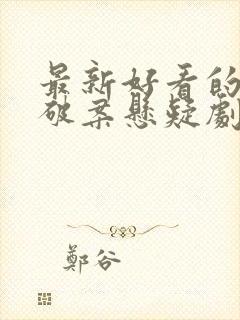 最新好看的
破案懸疑劇
鄭谷